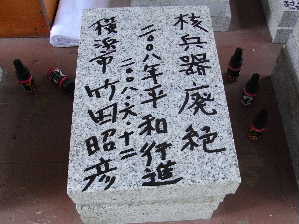 核兵器廃絶
二〇〇八年平和行進
二〇〇八.六.十二
横浜市 竹田昭彦